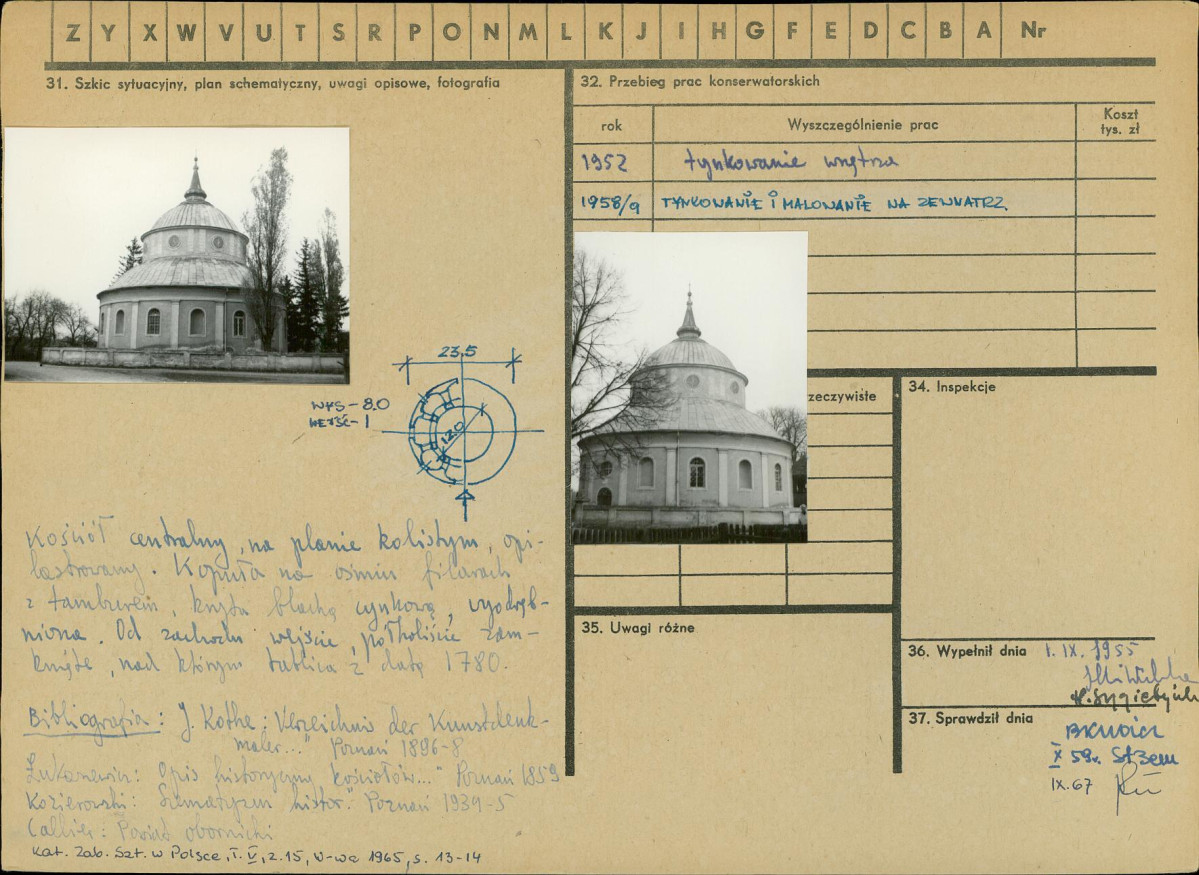 Z Y X W V U T S R P O N M L K J I H G F E D C B A Nr
31. Szkic sytuacyjny, plan schematyczny, uwagi opisowe, fotografia
23,5
WYS – 8.0
WEJŚĆ – 1
12.0
Kościół centralny, na planie kolistym, opi-
lastrowany. Kopuła na ośmiu filarach
z tamburem, kryta blachą cynkową, wyodręb-
niona. Od zachodu wejście, półkoliście zam-
knięte, nad którym tablica z datą 1780.
Bibliografia: J. Kothe: Verzeichnis der Kunstdenk-
maler..." Poznań 1896-8
Łukaszewicz: Opis historyczny kościołów..." Poznań 1859
Kozierowski: Szematyzm histor." Poznań 1934-5
Callier: Powiat obornicki
Kat. Zab. Szt. w Polsce, T. V, z. 15, W-wa 1965, s. 13-14
32. Przebieg prac konserwatorskich
rok Wyszczególnienie prac Koszt tys. zł
1952 tynkowanie wnętrza
1958/9 TYNKOWANIE i MALOWANIE NA ZEWNATRZ.
rzeczywiste
34. Inspekcje
35. Uwagi różne
36. Wypełnił dnia 1. IX. 1955
37. Sprawdził dnia
X 59r.
IX.67